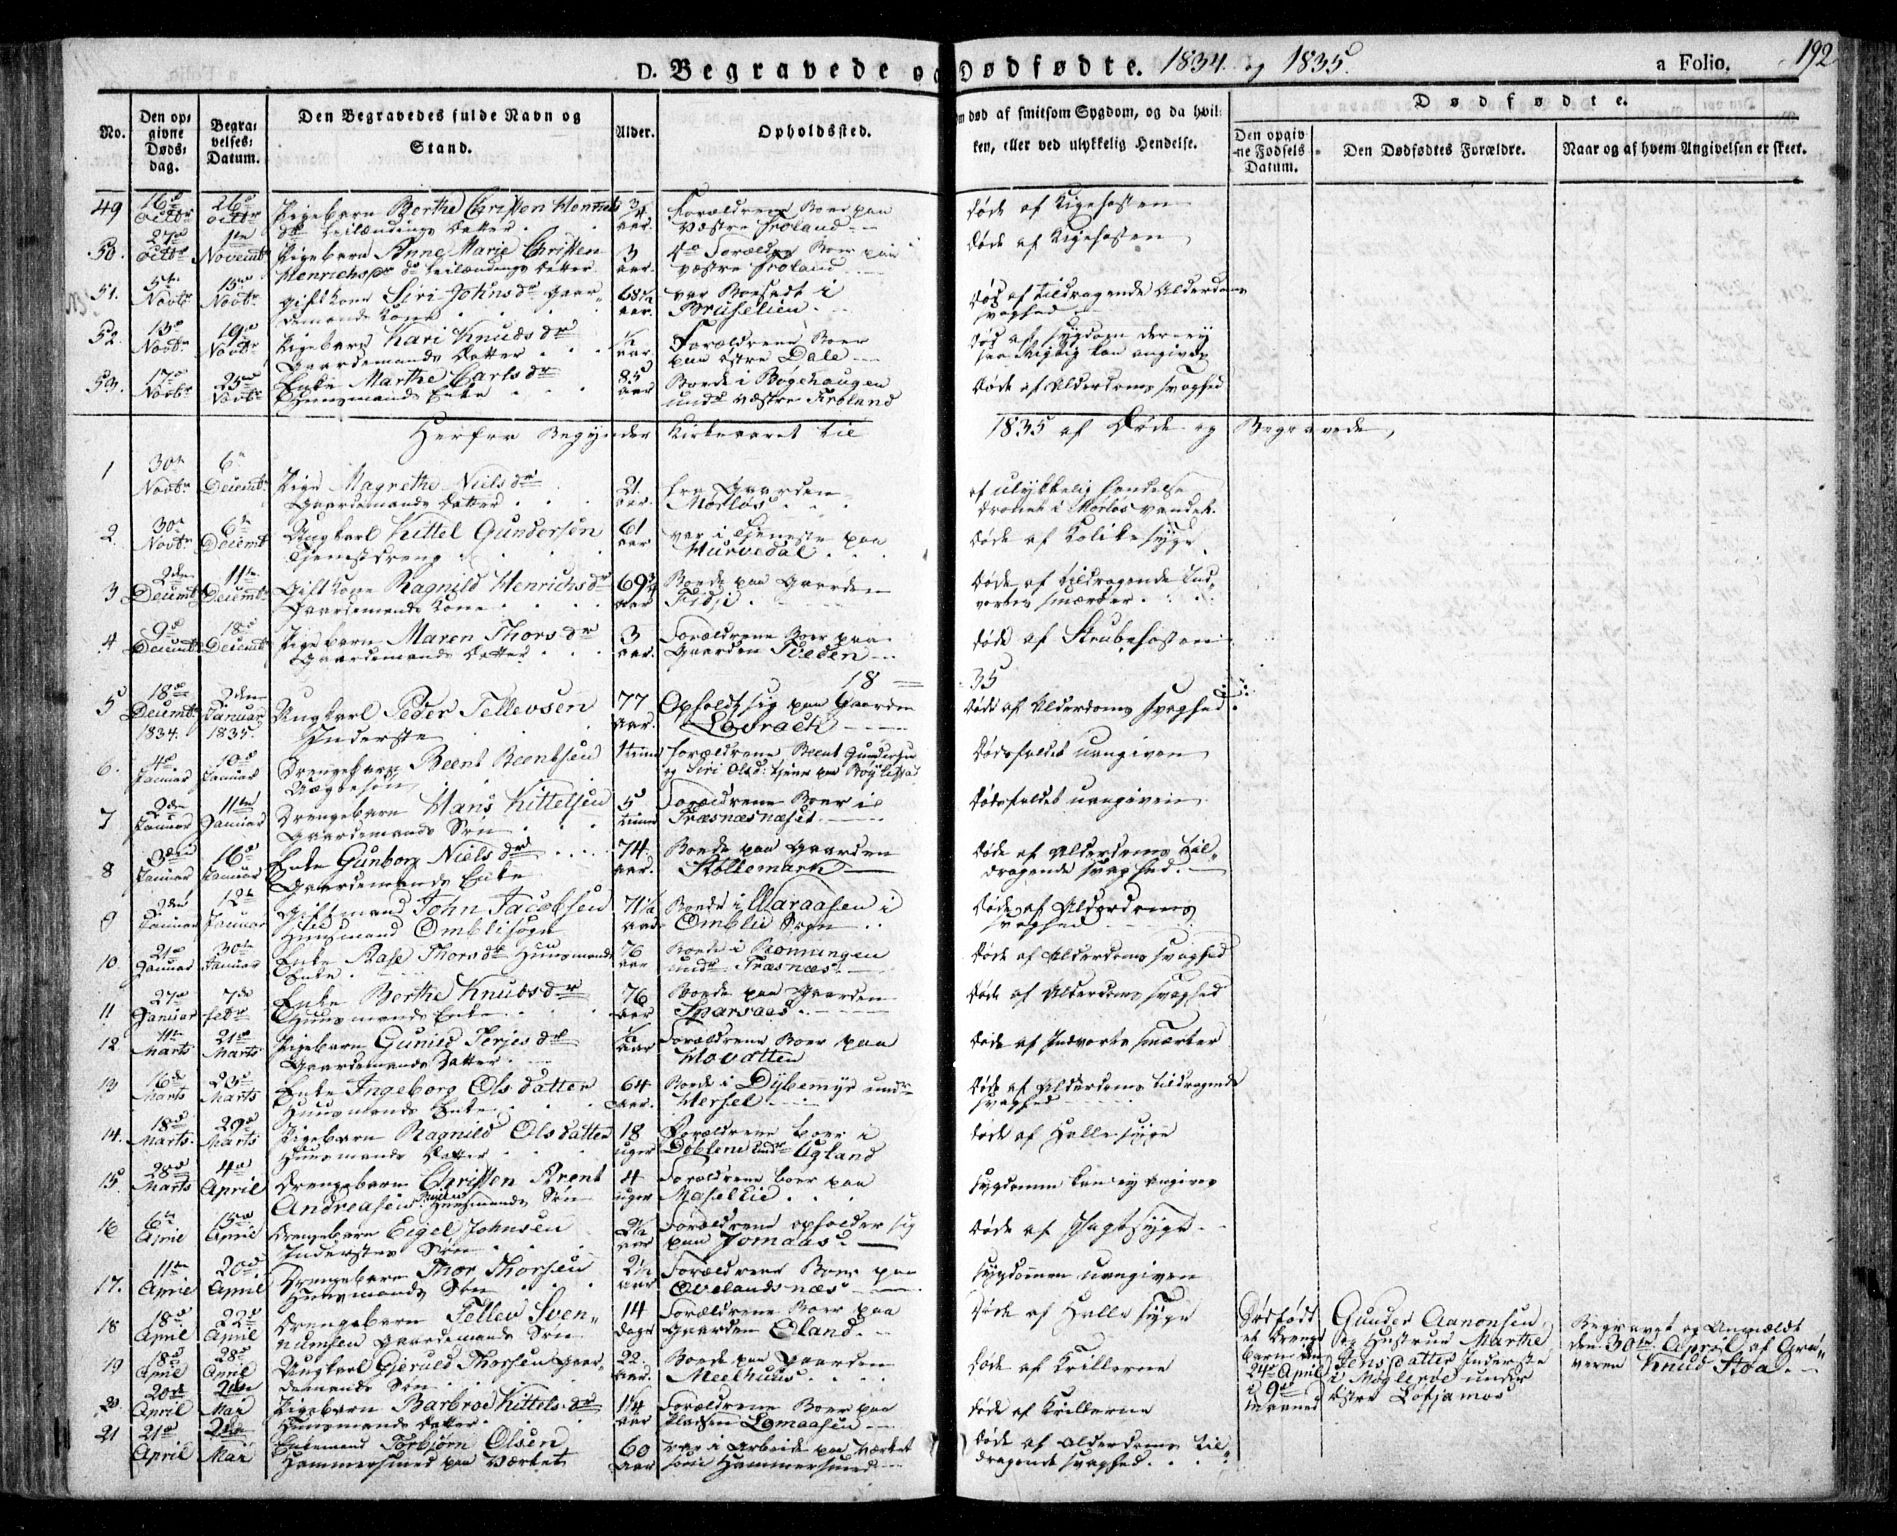 D. Begravede og Dødfødte. 1834 og 1835. a Folio. 192
No. Den opgivne Dødsdag. Begravelses-Datum. Den Begravedes fulde Navn og Stand. Alder. Opholdssted. Om død af smitsom Sygdom, og da hvilken, eller ved ulykkelig Hendelse.
Dødfødte.
Den opgivne Fødsels Datum. Den Dødfødtes Forældre. Naar og af hvem Angivelsen er skeet.
49 16de Octbr 26de Octbr Pigebarn Berthe Christen Henrichs dr Leilændings Datter 3/4 aar. Forældrene Boer paa Væstre Froland døde af Kigehosten
50. 27de Octbr 1te Novembr Pigebarn Anne Marie Christen Henrichs dr Leilændings Datter 3 aar. Forældre Boer paa Væstre Froland døde af Kigehosten
51. 5te Novbr 15de Novbr Gift Kone Siri Johns dr Gaardmands Kone 68 1/2 aar. var Bosadt i Bruselien. Død af tildragende Alderdoms svaghed
52. 13de Novbr 19de Novbr Pigebarn Kari Knuds dr Gaardemands Datter 1/2 aar. Forældrene Boer paa Østre Dale død af sygdom der ey saa rigtig kan angives
53. 17de Novbr 25de Novbr Enke Marthe Carls dr Huusmands Enke 85 aar Boede i Bøgehaugen undr væstre Froland døde af Alderdoms svaghed
Herfra Begynder Kirkeaaret til 1835 af Døde og Begravede,
1 30te Novbr 6te Decembr Pige Magrethe Niels dr Gaardemands Datter 21. aar. fra Gaarden Mørløs af ulykkelig Hendelse druknet i Mørløs vandet.
2. 30te Novbr 6te Decembr Ungkarl Kittel Gundersen Tjenestdreng 61 aar var i Tjeneste paa Hurvedal døde af Kolikesyge
3 2den Decembr 11te Decembr Gift Kone Ragnild Henrichs dr Gaardemands Kone 69 3/4 aar Boede paa Gaarden Fidje. døde af tildragende Indvortes smærter
4 9de Decembr 18de Decembr Pigebarn Maren Thors dr Gaardemands Datter 3 aar. Forældrene Boer paa Gaarden Tveden døde af Strubehosten
18 35
5 18de Decembr 1834. 2den Januar 1835. Ungkarl Peder Tellevsen Inderste 77 aar. Opholdt sig paa Gaarden Lovrach døde af Alderdoms svaghed.
6. 4de Januar 10de Januar Drengebarn Beent Beentsen Uægtesøn timer forældrene Beent Gundersen og Siri Olsd: tjener paa Bøylestad Dødsfaldet uangiven
7 2den Januar 11te Januar Drengebarn Hans Kittelsen Gaardemands Søn 5 timer Forældrene Boer i Træsnæsnæset Dødsfaldet uangiven
8 3die Januar 16de Januar Enke Gunborg Niels dr Gaardemands Enke 74. aar. Boede paa Gaarden Stollemark døde af Alderdoms tildragende svaghed.
9 2den Januar 12te Januar Giftmand John Jacobsen Huusmand Omblisogn 71 1/2 aar Boede i Maraasen i Omblie Sogn døde af Alderdoms svaghed
10 21de Januar 30te Januar Enke Aase Thors dr Huusmands Enke. 76 aar Boede i Rønningen undr Træsnæs. døde af Alderdoms svaghed
11 27de Januar 7de febr Enke Berthe Knuds dr Huusmands Enke 76 aar Boede paa Gaarden Sparsaas døde af Alderdoms svaghed
12. 11te Marts 21de Marts Pigebarn Gunild Terjes dr Gaardemands Datter 1/2 aar Forældrene Boer paa Hovatten døde af Indvortes smærter
13 16de Marts 23de Marts Enke Ingeborg Olsdatter Huusmands Enke 64 aar. Boede i Dybemyr undr Hersel døde af Alderdoms tildragende svaghed
14. 18de Marts. 29de Marts Pigebarn Ragnild Olsdatter Huusmands Datter 18 uger Forældrene boer i Døblene undr Ugland døde af Halle syge
15. 28de Marts 4de April Drengebarn Christen Arent Andreasen Huusmands Søn 4 uger Forældrene boer paa Maselie sygdommen kan ey angives
16 6te April 15de April Drengebarn Eigel Johnsen Inderstes Søn 2 1/2 aar Forældrene opholder sig paa Jomaas. døde af Slagesyge
17. 11te April 20de April Drengebarn Thor Thorsen Huusmands Søn 2 1/2 aar Forældrene Boer paa Ovelandsnæs sygdommen uangiven
18 18de April 22de April Drengebarn Tellev Svennumsen Gaardemands Søn 14 dage Forældrene Boer paa Gaarden Øland. Døde af Halle syge
Dødfødt et Drengebarn den 24de April i 9de maaned Gunder Aanonsen, og Hustrue Marthe Jensdatter Inderste i Møglerøe under Østre Løfjamos Begravet og Anmældt den 30te April af Graveren Knud Stoa.
19 18de April 28de April Ungkarl Gjeruld Thorsen Gaardemands Søn 22. aar. Boede paa Gaarden Meelhuus døde af Krillerne
20 20de April 2den Mai Pigebarn Barbroe Kittels dr Huusmands Datter 1 1/4 aar Forældrene Boer paa Pladsen Lomaasen døde af Krillerne
21 21de April 2den Mai Enkemand Torbjørn Olsen Hammersmed paa Værket 60 aar var i Arbeide paa Værket som Hammersmed døde af Alderdoms tildragende svaghed.